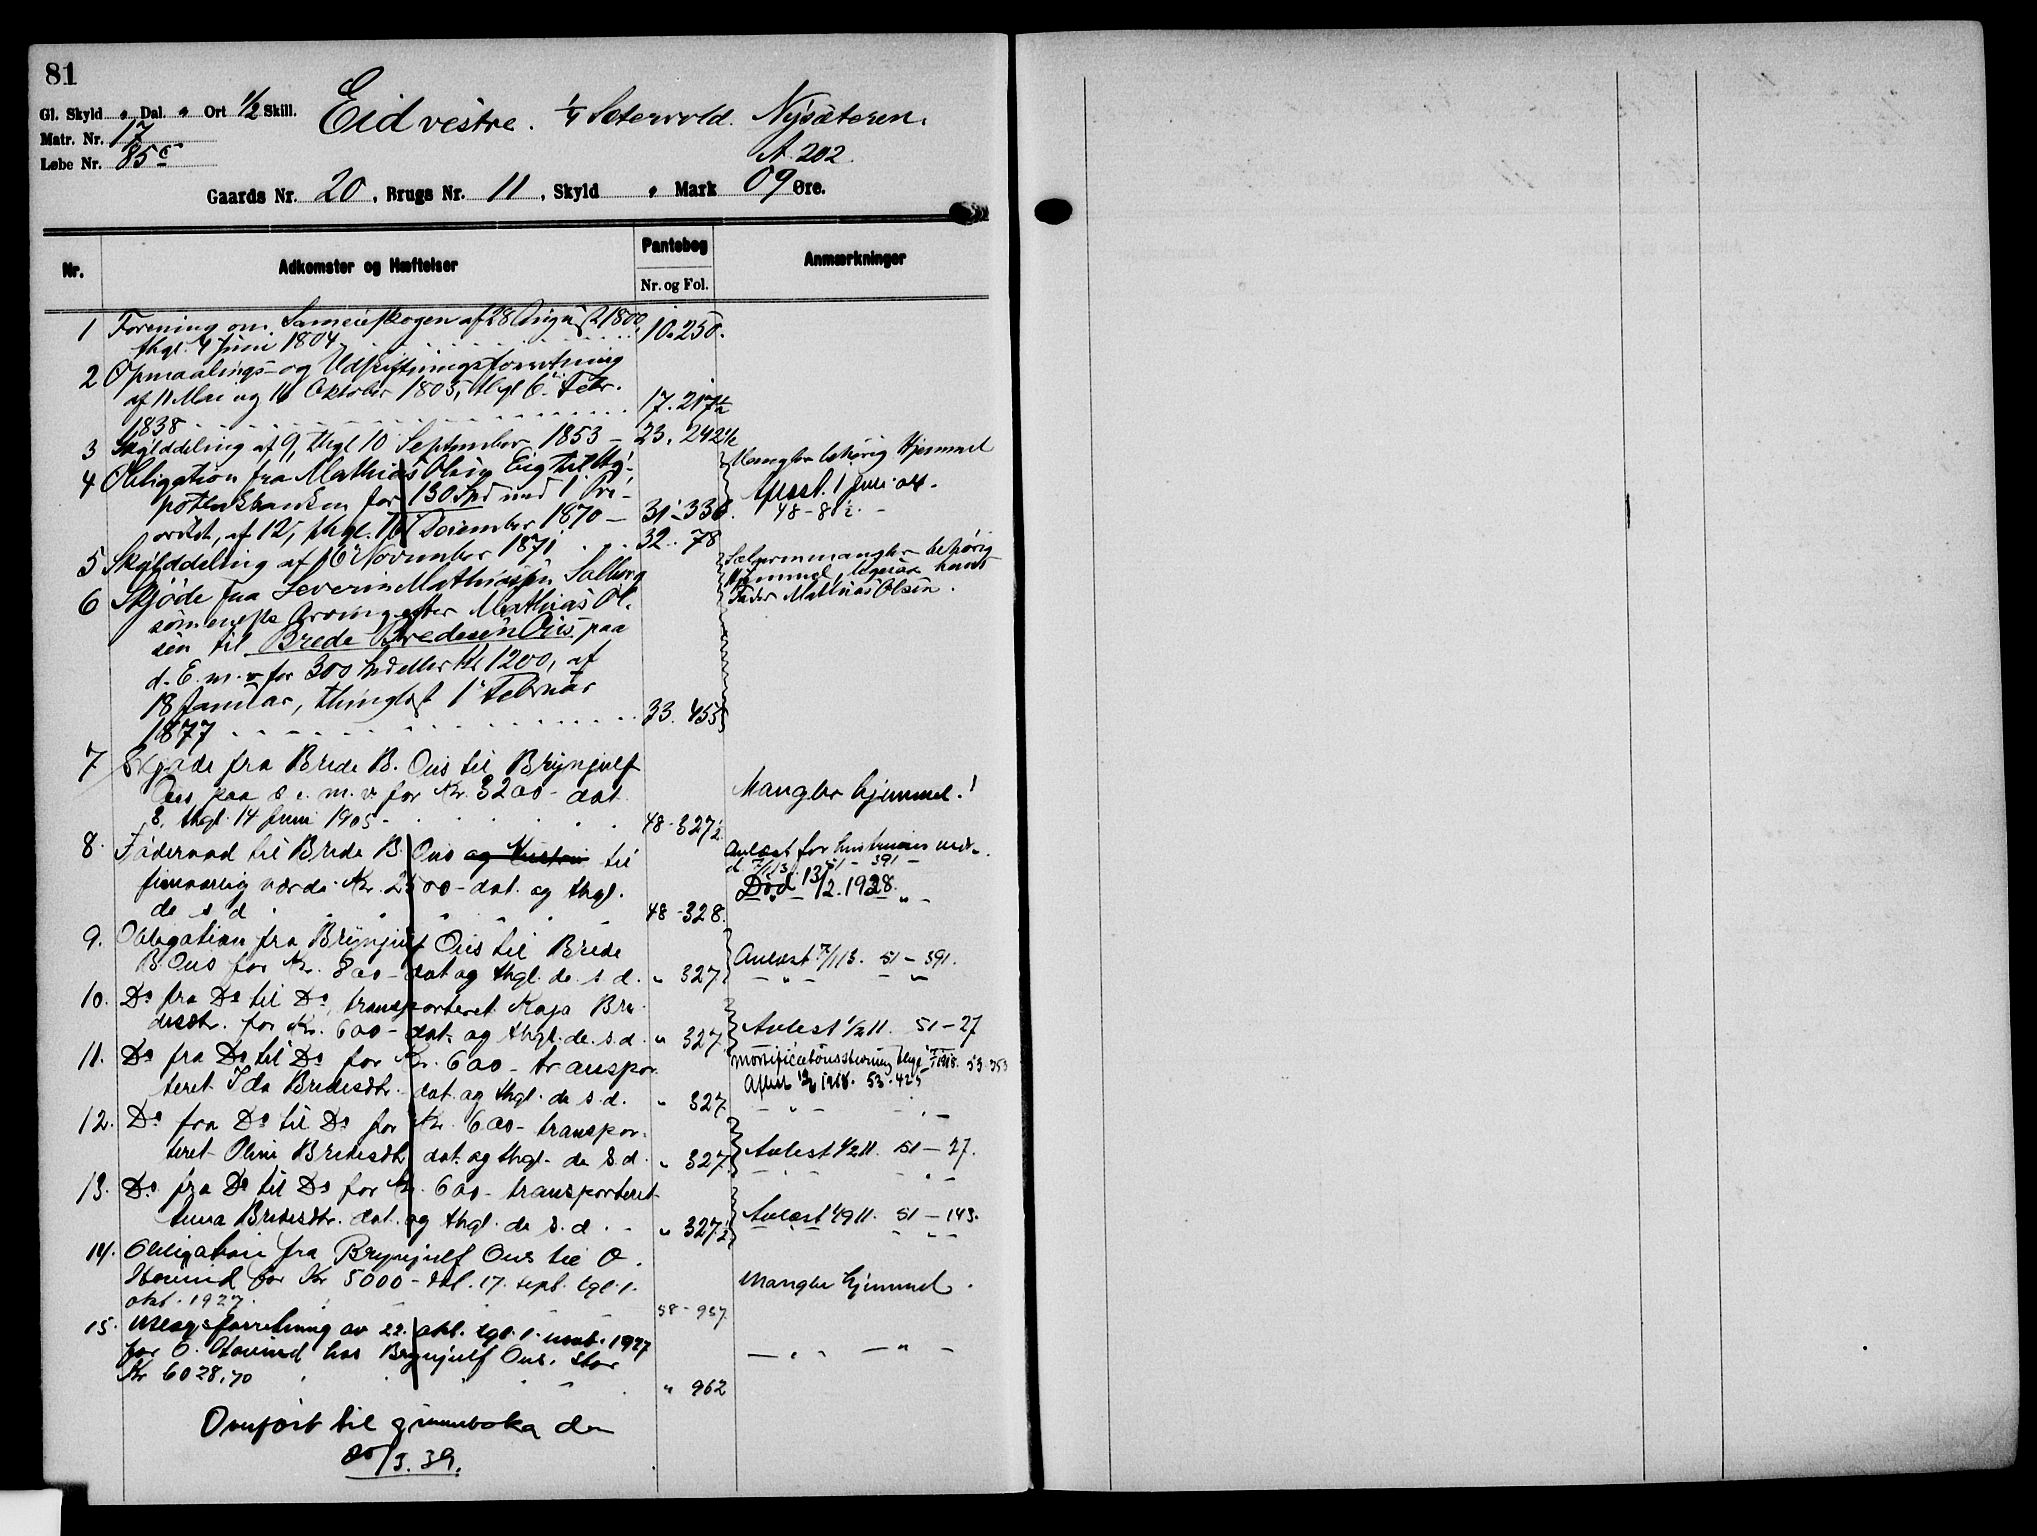 81
Gl. Skyld • Dal. • Ort 1/2 Skill. Eid vestre. 1/4 Setervold. Nysæteren.
Matr. Nr. 17
Løbe Nr. 85 c A. 202.
Gaards Nr. 20, Brugs Nr. 11, Skyld • Mark 09 Øre.
Nr. Adkomster og Hæftelser Pantebog Nr. og Fol. Anmærkninger
1 Forening om Sameieskogen af 28 August 1800,
thgl. 4 Juni 1804 10. 250.
2 Opmaalings- og Udskiftningsforretning
af 11 Mai og 16 Oktober 1805, thgl 6 Febr.
1838 17. 217
3 Skylddeling af 9, thgl 10 September 1853 – 23. 242 1/2
4 Obligation fra Mathias Olsen Eig til Hy- Mangler behørig Hjemmel
pothekbanken for 130 Spd med 1 Pri-
oritet, af 12, thgl. 16 Desember 1870 – 31 - 336. 48 - 8
5 Skylddeling af 16 November 1871 32. 78
6 Skjøde fra Severin Mathiassen Solberg Sælgeren mangler behørig
som eneste Arving efter Mathias Ol- Hjemmel, ligesaa hans
sen til Brede Bredesen Ous paa Fader Mathias Olsen.
d. E. m. v for 300 Spd eller Kr 1200, af
18 Januar, thinglæst 1 Februar
1877 33. 455
7 Skjøde fra Brede B. Ous til Brynjulf
Ous paa d. e. m. v. for Kr. 3200 - dat. Mangler hjemmel!
8, thgl. 14 Juni 1905 - 48 - 327 1/2
8. Føderaad til Brede B. Ous og Hustru til Avlæst for hustruens ved-
femaarlig værdi Kr. 2500 - dat. og thgl. d 7/1 13. 51 - 391 -
de s d 48 - 328. Död 13/2. 1928.
9. Obligation fra Brynjulf Ous til Brede
B. Ous for Kr. 800 - dat og thgl. de. s d. " 327 Avlæst 7/1 13. 51 - 391.
10. Do fra Do til Do, transporteret Kaja Bre-
desdtr. for Kr. 600 - dat. og thgl. de. s. d. " 327 Avlest 1/2 11. 51 - 27
11. Do fra Do til Do for Kr. 600 - transpor- Mortifications­stevning tlgl 1918. 53. 353
teret Ida Bredesdtr. dat. og thgl. de s. d. " 327 Aflest 1918. 53. 425
12. Do fra Do til Do for Kr. 600 - transpor-
teret Oline Bredesdtr. dat. og thgl. de s. d. " 327 Avlest 1/2 11. 51 - 27.
13. Do fra Do til Do for Kr. 600 - transporteret
Anna Bredesdtr. dat. og thgl. de s. d. - " 327 1/2 Avlæst 4/9 11. 51 - 143.
14. Obligation fra Brynjulf Ous til O.
Hovind for Kr 5000 - dat. 17. sept. tgl. 1. Mangler hjemmel.
okt. 1927. 58 - 957
15. Utlægsforretning av 22. okt. tgl. 1. novb. 1927
for O. Hovind hos Brynjulf Ous, stor — " — " —
Kr 6028,70 " 962
Overført til grunnboka den
20/3. 39.